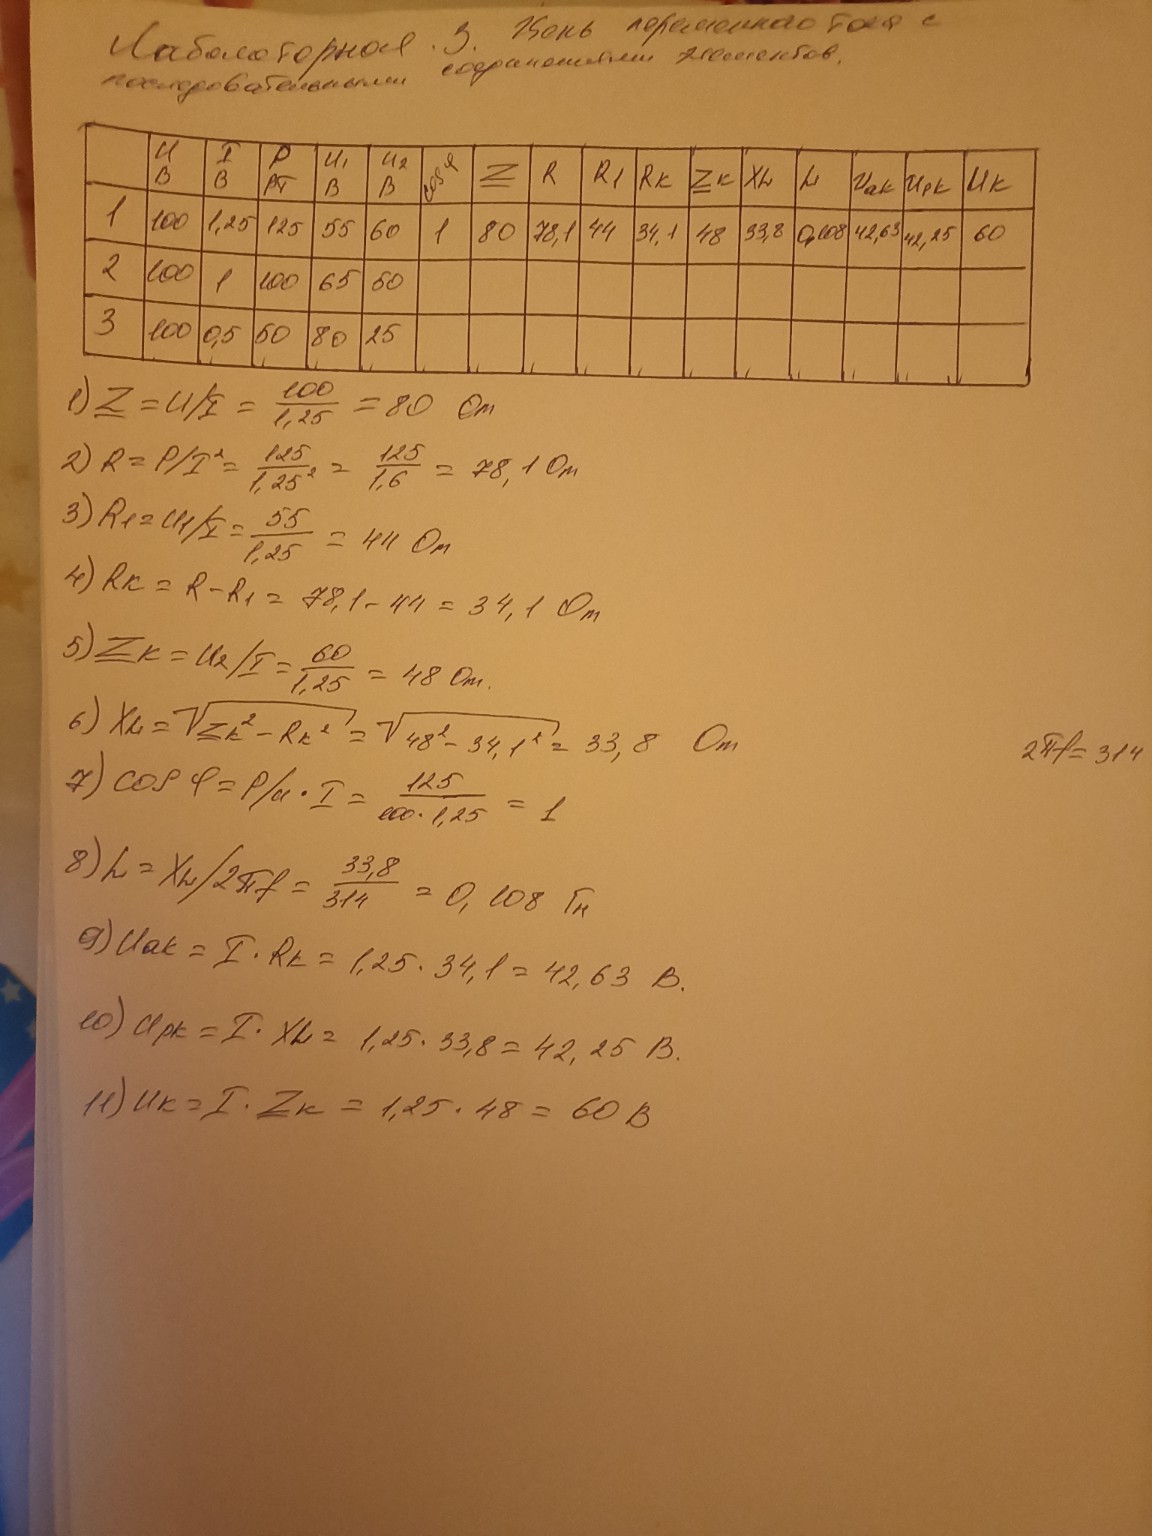 Лаболоторная 3. Цепь переменнаго тока с
последовательными соединениями элементов.
U В I В P Рт U1 В U2 В cos φ Z R R1 Rк Zк XL L Uак Uрк Uк
1 100 1,25 125 55 60 1 80 78,1 44 34,1 48 33,8 0,108 42,63 42,25 60
2 100 1 100 65 50
3 100 0,5 50 80 25
1) Z = U/I = 100/1,25 = 80 Ом
2) R = P/I² = 125/1,25² = 125/1,6 = 78,1 Ом
3) R1 = U1/I = 55/1,25 = 44 Ом
4) Rк = R - R1 = 78,1 - 44 = 34,1 Ом
5) Zк = U2/I = 60/1,25 = 48 Ом.
6) XL = √Zк² - Rк² = √48² - 34,1² = 33,8 Ом
2πf = 314
7) cos φ = P/U · I = 125/100 · 1,25 = 1
8) L = XL/2πf = 33,8/314 = 0,108 Гн
9) Uак = I · Rк = 1,25 · 34,1 = 42,63 В.
10) Uрк = I · XL = 1,25 · 33,8 = 42,25 В.
11) Uк = I · Zк = 1,25 · 48 = 60 В